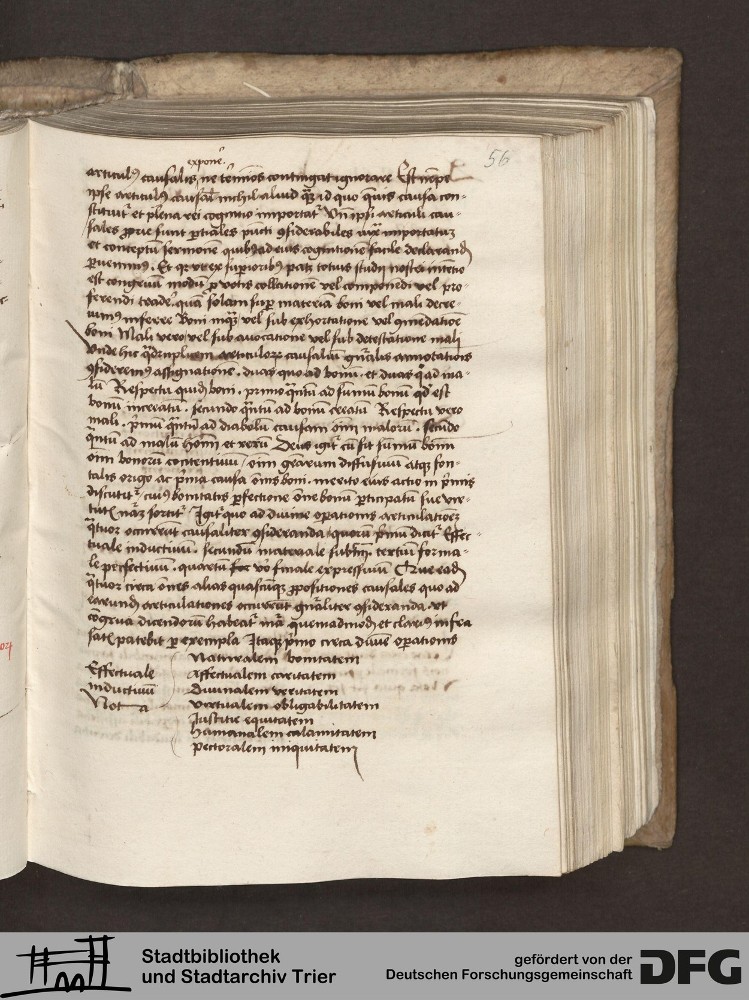 56
expone
articulus causalis, ne terminos contingat ignorare Est nempe
ipse articulus causalis nichil aliud quam id quo quevis causa con-
stituitur et plena rei cognitio importatur Unde ipsi articuli cau-
sales proprie sunt partiales puncti considerabiles importatum
et conceptum sermonem quibus ad eius cognitionem facile declarandum
pervenimus. Et quia ut ex superioribus patet totius studii nostri intentio
est congruum modum pro votis collationum vel componendi vel pro-
ferendi tradere. quam solam super materiam boni vel mali decre-
vimus inferre Boni inquam vel sub exhortatione vel commendatione
boni Mali vero vel sub avocatione vel sub detestatione mali
Unde hic quadruplicem articulorum causalium generalis annotationis
consideremus assignationem. duas quo ad bonum. et duas quo ad ma-
lum Respectu quidem boni. primo quantum ad summum bonum quod est
bonum increatum. secundo quantum ad bonum creatum Respectu vero
mali. primum quantum ad diabolum causam omnium malorum. secundo
quantum ad malum hominum et rerum Deus igitur cum sit summum bonum
omnium bonorum contentivum / omnium gratiarum diffusivum atque fon-
talis origo ac prima causa omnis boni. merito eius actio in primis
discutitur, cuius bonitatis perfectione omne bonum participatum sue vir-
tutis naturam sortitur Igitur quo ad divine operationis articulationem
quatuor occurrunt causaliter consideranda quorum primum dicitur Effec-
tuale inductivum. secundum materiale subiectum tertium forma-
le perfectivum. quartum vero finale expressivum Que eadem
quatuor circa omnes alias quascumque propositiones causales quo ad
earundem articulationes occurrunt generaliter consideranda. ut
congrua dicendorum habeatur materia quemadmodum et clarius infra
patebit per exempla Itaque primo circa divinas operationis
Naturalem bonitatem
Effectuale Affectualem caritatem
inductivum Divinalem veritatem
Nota Virtualem obligabilitatem
Justitie equitatem
Humanalem calamitatem
pectoralem iniquitatem
Stadtbibliothek
und Stadtarchiv Trier
gefördert von der
Deutschen Forschungsgemeinschaft
DFG